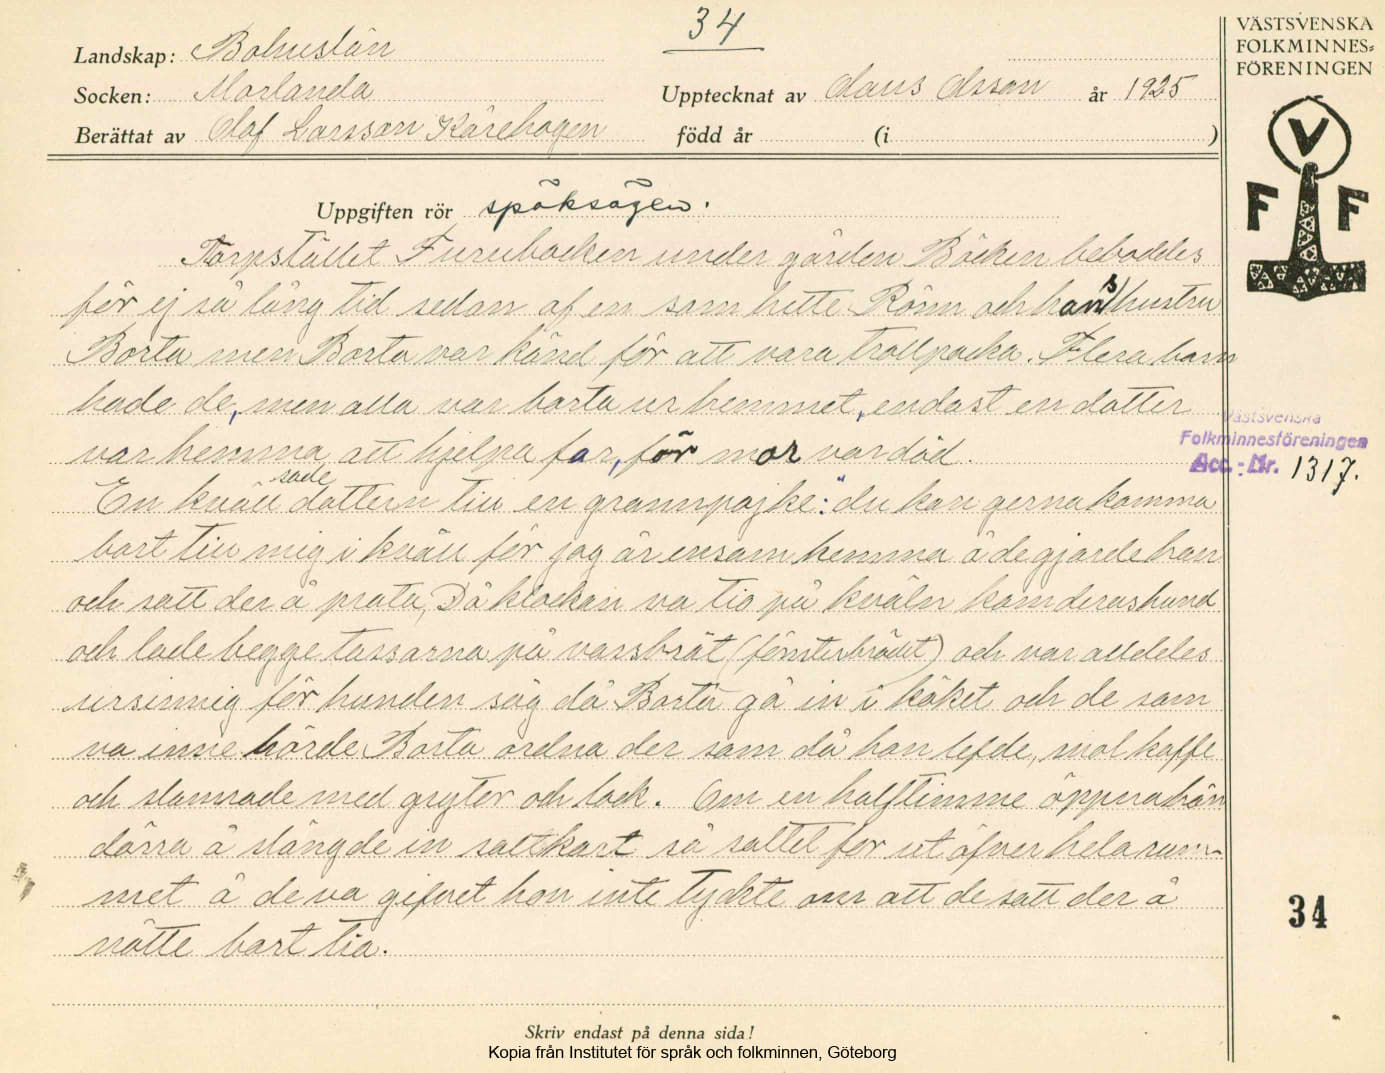 34
VÄSTSVENSKA
FOLKMINNES-
FÖRENINGEN
Landskap: Bohuslän
Socken: Morlanda
Upptecknat av Claus Olsson år 1925
Berättat av Olof Larsson Kårehogen född år (i )
V
F F
Uppgiften rör spöksägen.
Torpstället Furubacken under gården Bäcken beboddes
för ej så lång tid sedan af en som hette Rönn och hans hustru
Borta men Borta var känd för att vara trollpacka. Flera barn
hade de, men alla var borta ur hemmet, endast en dotter
var hemma att hjelpa far, för mor var död.
En kväll sade dottern till en grannpojke: "du kan gerna komma
bort till mig i kväll för jag är ensam hemma å de gjorde han
och satt der å prata, Då klockan va tio på kväln kom deras hund
och lade begge tassarna på vassbrät (fönsterbrädet) och var alldeles
ursinnig för hunden såg då Borta gå in i köket och de som
va inne hörde Borta ordna der som då hon lefde, mol kaffe
och slamrade med grytor och lock. Om en halftimme öppna hon
dörra å slängde in saltkart så saltet for ut öfver hela rum-
met å de va gifvet hon inte tyckte om att de satt der å
nötte bort tia.
Västsvenska
Folkminnesföreningen
Acc.-Nr. 1317.
34
Skriv endast på denna sida!
Kopia från Institutet för språk och folkminnen, Göteborg